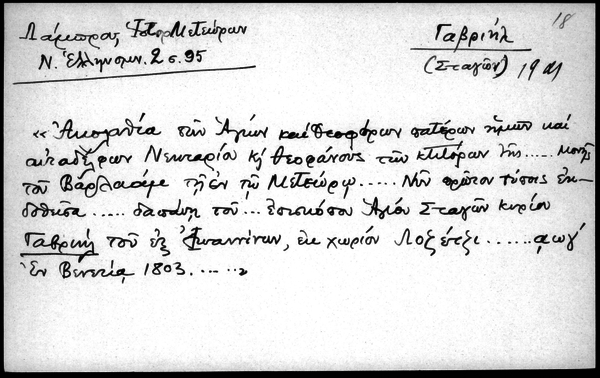 Λάμπρος, Ἱστορ Μετεώρων
Ν. Ἑλληνομν. 2 σ. 95
Γαβριήλ
(Σταγῶν)
18
« Ἀκολουθία τῶν Ἁγίων καὶ θεοφόρων πατέρων ἡμῶν καὶ
αὐταδέλφων Νεκταρίου κὴ Θεοφάνους τῶν κτιτόρων τῆς ..... μονῆς
τοῦ Βάρλαάμ τῇ ἐν τῷ Μετεώρῳ ..... Νῦν πρῶτον τύποις ἐκ-
δοθεῖσα ..... δαπάνῃ τοῦ ... ἐπισκόπου Ἁγίου Σταγῶν κυρίου
Γαβριήλ τοῦ ἐξ Ἰωαννίνων, ἐκ χωρίου ...... αωγʹ
Ἐν Βενετίᾳ 1803. .....